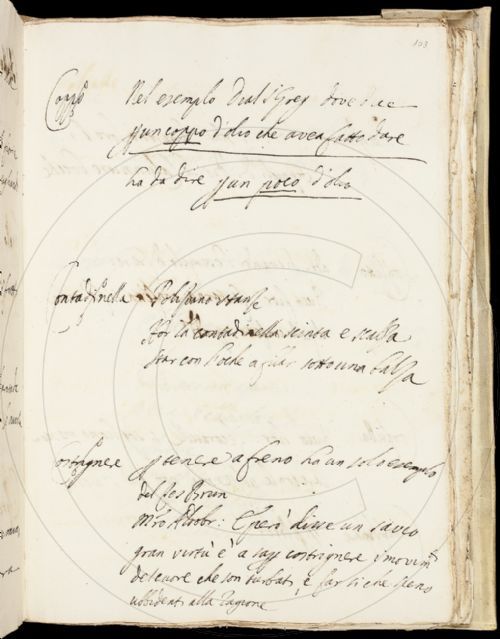 103
Coppo Nel esempio Dial S Greg dove dice
p un coppo d'olio che avea fatto dare
ha da dire p un poco d'olio
Contadinella Poliziano stanze
Or la contadinella scinta e scalza
star con l'oche a filar sotto una balza
Costrignere p tenere a freno ha un solo esempio
del Tes Brun
Mro Aldobr: E però disse un savio
gran virtù è a sap costrignere i movimti
del cuore che son turbati, e far si che sieno
ubbidienti alla ragione